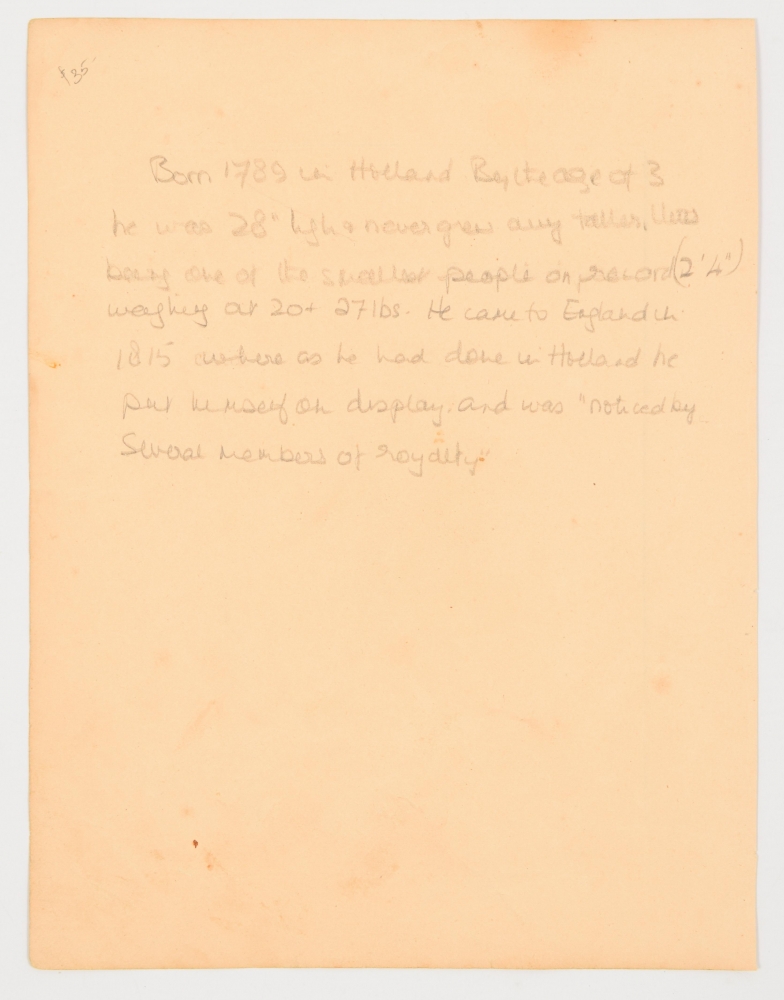 £35
Born 1789 in Holland By the age of 3
he was 28" high & never grew any taller, thus
being one of the smallest people on record (2'4")
weighing at 20+ 27 lbs. He came to England in
1815 where as he had done in Holland he
put himself on display, and was "noticed by
Several members of royalty"